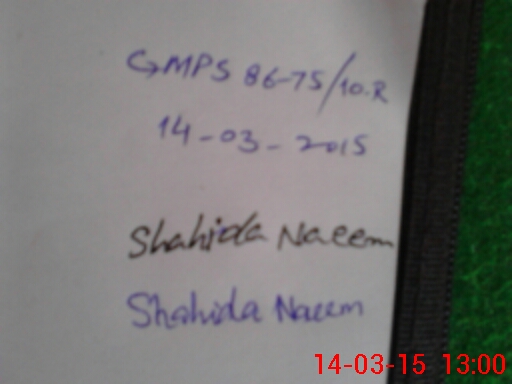 GMPS 86-75/10.R
14-03-2015
Shahida Naeem
Shahida Naeem
14-03-15 13:00